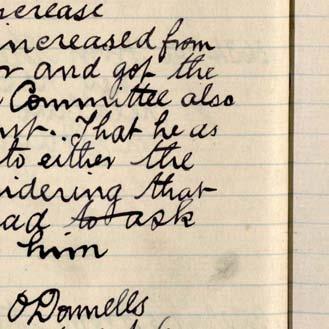 ncrease
increased from
r and got the
Committee also
That he as
to either the
idering that
ad to ask
him
O'Donnells